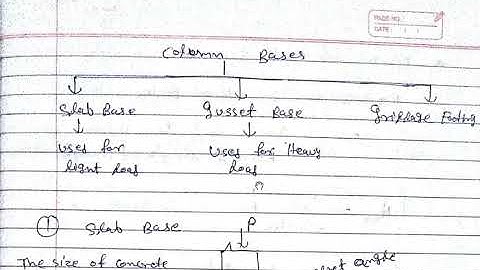 PAGE NO.
DATE
Column Bases
Slab Base Gusset Base Grillage Footing
uses for Uses for Heavy
light loas loas
① Slab Base P
The size of concrete
angle